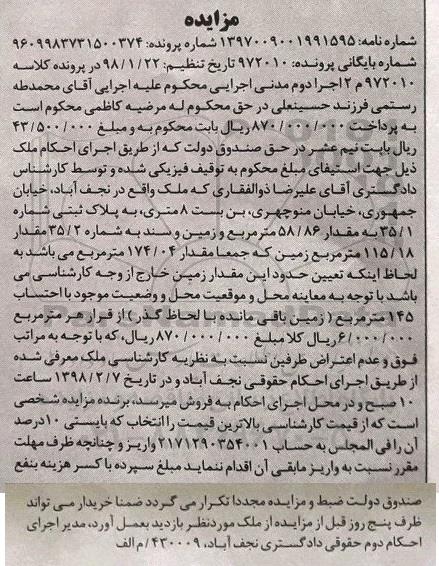 مزایده
شماره نامه: ۱۳۹۷۰۰۹۰۰۱۹۹۱۵۹۵ شماره پرونده: ۹۶۰۹۹۸۳۷۳۱۵۰۰۳۷۴
شماره بایگانی پرونده: ۹۷۲۰۱۰ تاریخ تنظیم: ۹۸/۱/۲۲ در پرونده کلاسه
۹۷۲۰۱۰ م ۲ اجرا دوم مدنی اجرایی محکوم علیه اجرایی آقای محمدطه
رستمی فرزند حسینعلی در حق محکوم له مرضیه کاظمی محکوم است
به پرداخت ۸۷۰/۰۰۰/۰۰۰ ریال بابت محکوم به و مبلغ ۴۳/۵۰۰/۰۰۰
ریال بابت نیم عشر در حق صندوق دولت که از طریق اجرای احکام ملک
ذیل جهت استیفای مبلغ محکوم به توقیف فیزیکی شده و توسط کارشناس
دادگستری آقای علیرضا ذوالفقاری که ملک واقع در نجف آباد، خیابان
جمهوری، خیابان منوچهری، بن بست ۸ متری، به پلاک ثبتی شماره
۳۵/۱ به مقدار ۵۸/۸۶ مترمربع و زمین و سند به شماره ۳۵/۲ مقدار
۱۱۵/۱۸ مترمربع زمین که جمعا مقدار ۱۷۴/۰۴ مترمربع می باشد به
لحاظ اینکه تعیین حدود این مقدار زمین خارج از وجه کارشناسی می
باشد با توجه به معاینه محل و موقعیت محل و وضعیت موجود با احتساب
۱۴۵ مترمربع (زمین باقی مانده با لحاظ گذر) از قرار هر مترمربع
۶/۰۰۰/۰۰۰ ریال کلا مبلغ ۸۷۰/۰۰۰/۰۰۰ ریال، که با توجه به مراتب
فوق و عدم اعتراض طرفین نسبت به نظریه کارشناسی ملک معرفی شده
از طریق اجرای احکام حقوقی نجف آباد و در تاریخ ۱۳۹۸/۲/۷ ساعت
۱۰ صبح و در محل اجرای احکام به فروش میرسد، برنده مزایده شخصی
است که از قیمت کارشناسی بالاترین قیمت را انتخاب که بایستی ۱۰درصد
آن را فی المجلس به حساب ۲۱۷۱۲۹۰۳۵۴۰۰۱ واریز و چنانچه ظرف مهلت
مقرر نسبت به واریز مابقی آن اقدام ننماید مبلغ سپرده با کسر هزینه بنفع
صندوق دولت ضبط و مزایده مجددا تکرار می گردد ضمنا خریدار می تواند
ظرف پنج روز قبل از مزایده از ملک موردنظر بازدید بعمل آورد، مدیر اجرای
احکام دوم حقوقی دادگستری نجف آباد، ۴۳۰۰۰۹/م الف